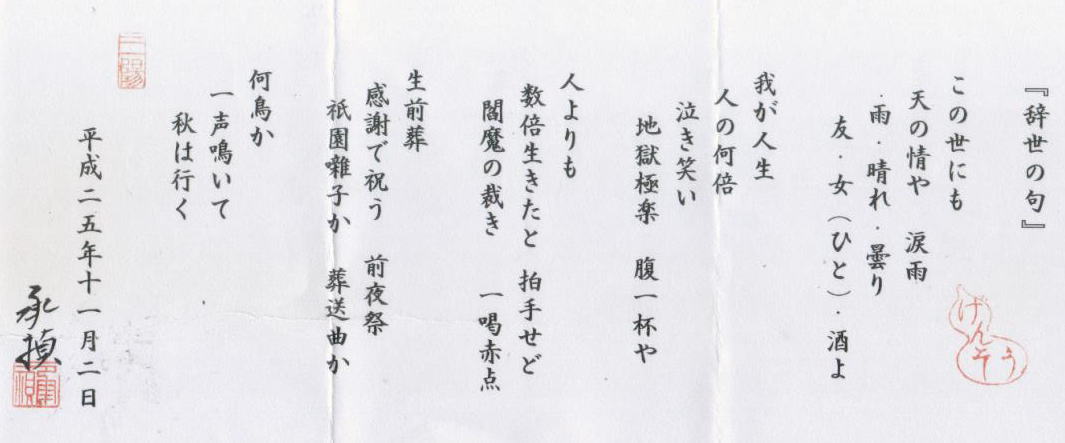 『辞世の句』
この世にも
天の情や　涙雨
雨・晴れ・曇り
友・女（ひと）・酒よ
我が人生
人の何倍
泣き笑い
地獄極楽　腹一杯や
人よりも
数倍生きたと　拍手せど
閻魔の裁き　一喝赤点
生前葬
感謝で祝う　前夜祭
祇園囃子か　葬送曲か
何鳥か
一声鳴いて
秋は行く
平成二五年十一月二日
承禎
げん